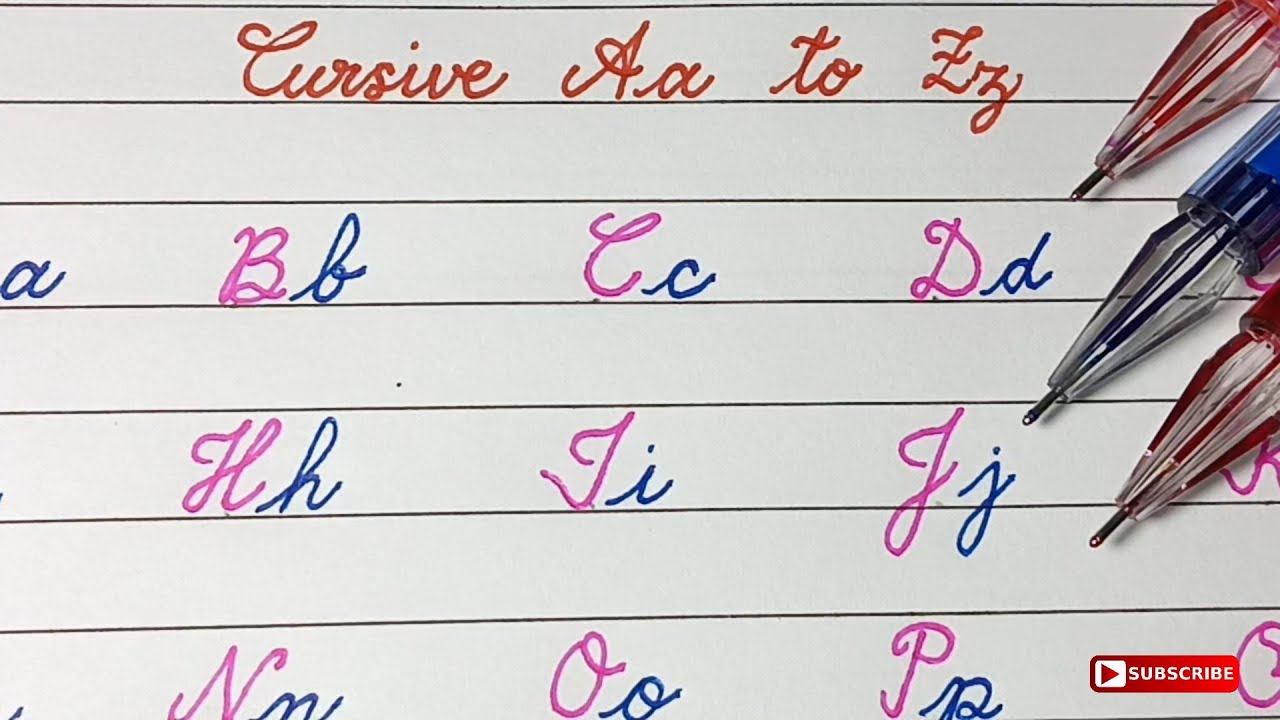 Cursive Aa to Zz
a Bb Cc Dd
Hh Ii Jj K
Nn Oo Pp
SUBSCRIBE